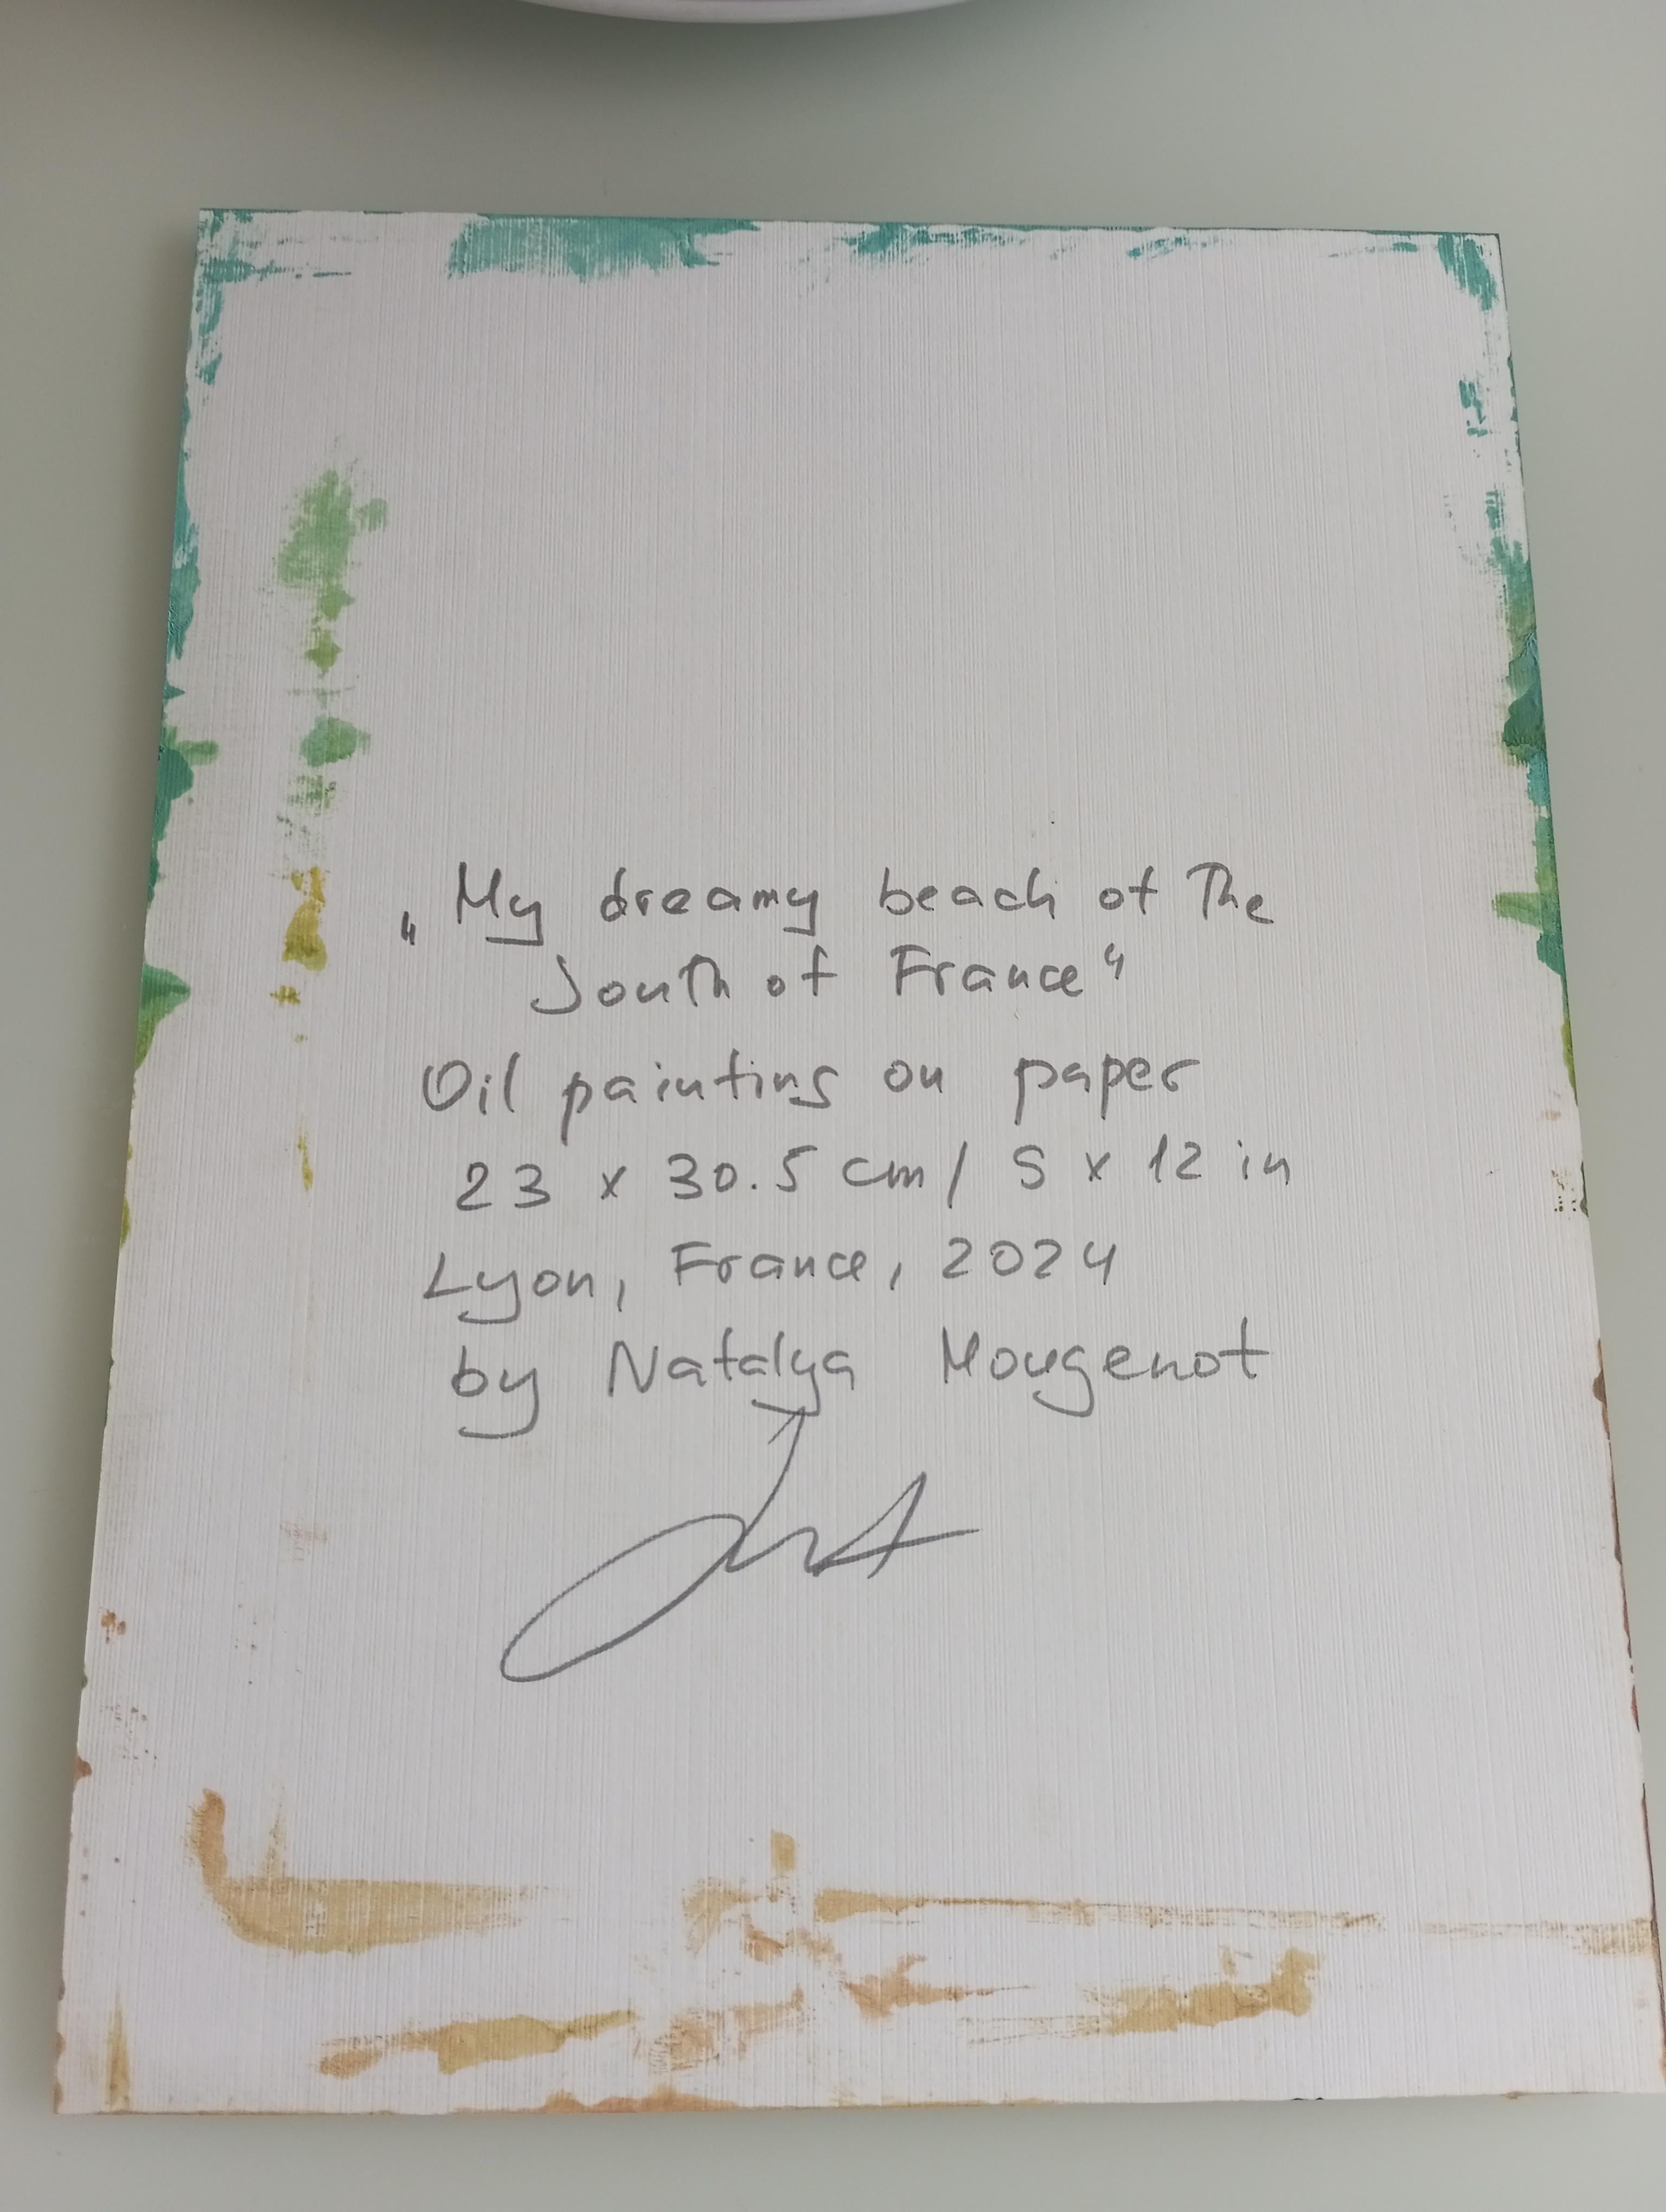 „My dreamy beach of The
South of France“
Oil painting on paper
23 x 30.5 cm / 9 x 12 in
Lyon, France, 2024
by Natalya Mougenot